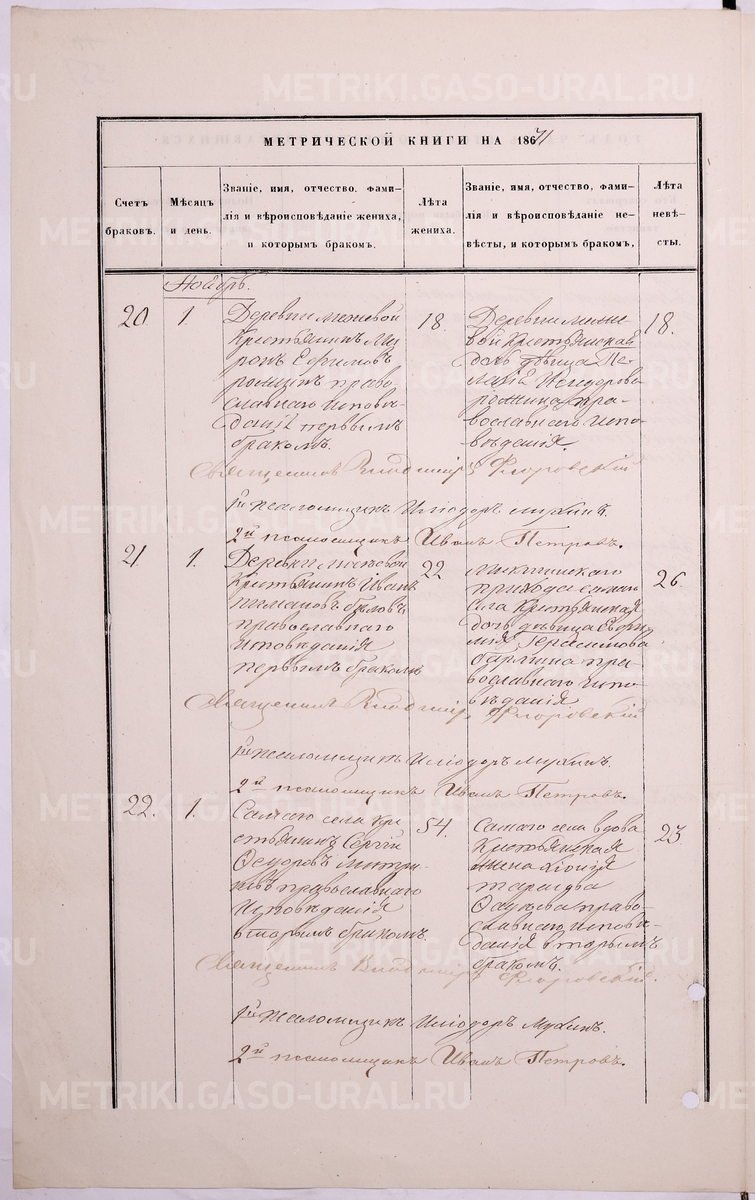 МЕТРИЧЕСКОЙ КНИГИ НА 1871
Счетъ браковъ.
Мѣсяцъ и день.
Званіе, имя, отчество, фами-
лія и вѣроисповѣданіе жениха,
и которымъ бракомъ.
Лѣта жениха.
Званіе, имя, отчество, фами-
лія и вѣроисповѣданіе не-
вѣсты, и которымъ бракомъ,
Лѣта невѣ-
сты.
Ноябрь.
20
1.
Деревни
Крестьянинъ Ми
ронъ Ефимовъ
право
славнаго исповѣ-
данія первымъ
бракомъ.
18.
Деревни
вой Крестьянская
дочь дѣвица Пе-
лагія
пра-
вославнаго испо-
вѣданія.
18.
Священникъ Владиміръ Флоровскій
1й псаломщикъ Иліодоръ Мухинъ.
2й псаломщикъ Иванъ Петровъ.
21.
1.
Деревни
Крестьянинъ Иванъ
православнаго
исповѣданія
первымъ бракомъ
22
прихода самаго
села Крестьянская
дочь дѣвица Евфи
мія Герасимова
пра-
вославнаго испо
вѣданія
26
Священникъ Владиміръ Флоровскій
1й псаломщикъ Иліодоръ Мухинъ.
2й псаломщикъ Иванъ Петровъ.
22.
1.
Самаго села Кре
стьянинъ Сергій
Ѳедоровъ
православнаго
исповѣданія
вторымъ бракомъ.
54.
Самаго села вдова
Крестьянская
жена
Тарасова
право-
славнаго исповѣ-
данія вторымъ
бракомъ.
23
Священникъ Владиміръ Флоровскій.
1й псаломщикъ Иліодоръ Мухинъ.
2й псаломщикъ Иванъ Петровъ.
METRIKI.GASO-URAL.RU